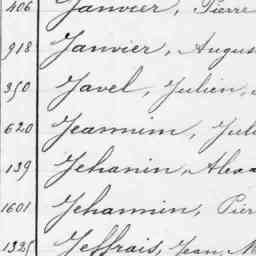 406 Janvier, Pierre
918 Janvier, Augus
350 Javel, Julien,
620 Jeannin, Juli
139 Jehanin, Alexa
1601 Jehannin, Pier
1325 Jeffrais, Jean, M